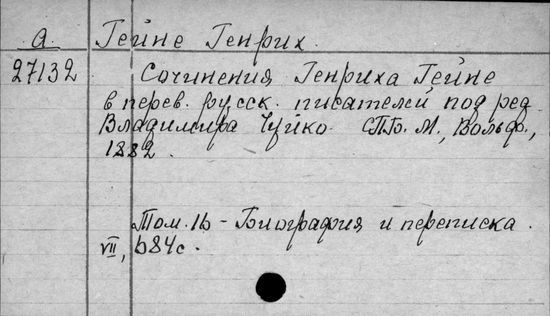 а Гейне Генрих.
27132 Сочинения Генриха Гейне
в перев. русск. писателей под ред.
Владимира Чуйко СПБ. М., Вольф.,
1882.
Том. 16 - Биография и переписка.
VII, 684с.